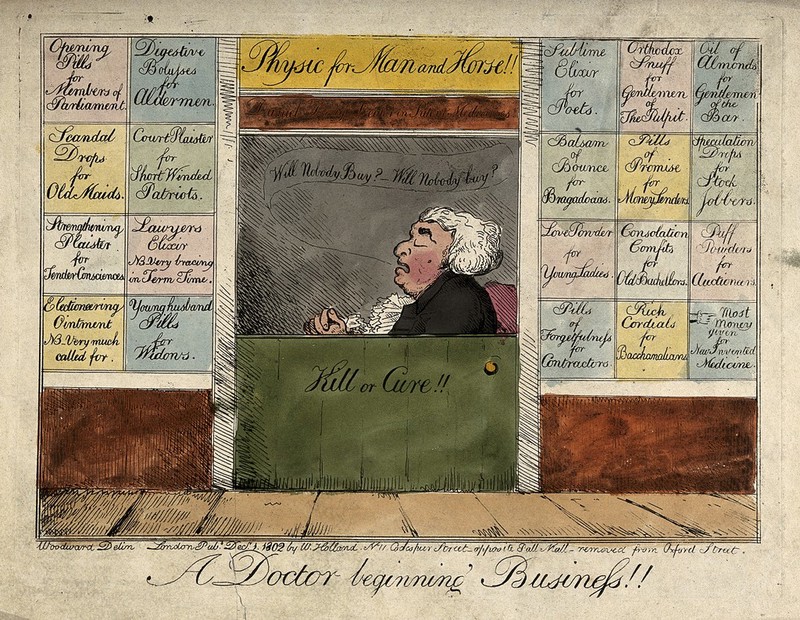 Opening
Pills
for
Members of
Parliament.
Digestive
Bolusses
for
Aldermen.
Scandal
Drops
for
Old Maids.
Court Plaister
for
Short Winded
Patriots.
Strengthening
Plaister
for
Tender Consciences
Lawyers
Elixir
NB. Very bracing
in Term Time.
Electioneering
Ointment
NB. Very much
called for.
Young husband
Pills
for
Widows.
Physic for Man and Horse!!
in
Will Nobody Buy? Will Nobody buy?
Kill or Cure!!
Sublime
Elixir
for
Poets.
Orthodox
Snuff
for
Gentlemen
of
The Pulpit.
Oil of
Almonds
for
Gentlemen
of the
Bar.
Balsam
of
Bounce
for
Bragadocias.
Pills
of
Promise
for
Money Lenders
Speculation
Drops
for
Stock
Jobbers.
Love Powder
for
Young Ladies.
Consolation
Comfits
for
Old Batchellors.
Puff
Powders
for
Auctioneers.
Pills
of
Forgetfulness
for
Contractors.
Rich
Cordials
for
Bacchanalians
Most
Money
given
for
New Invented
Medicine.
Woodward Delin London Pubd. Decr. 1. 1802 by W. Holland. No. 11 Cockspur Street opposite Pall Mall removed from Oxford Street.
A Doctor beginning Business!!